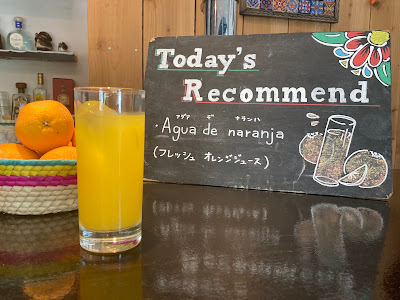 Today's
Recommend
アグア デ ナランハ
・Agua de naranja
(フレッシュ オレンジジュース)